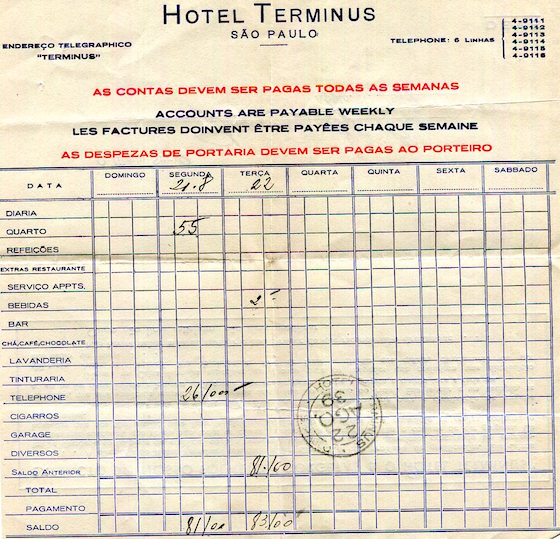 HOTEL TERMINUS
SÃO PAULO
ENDEREÇO TELEGRAPHICO
"TERMINUS"
TELEPHONE: 6 LINHAS
4-9111
4-9112
4-9113
4-9114
4-9115
4-9116
AS CONTAS DEVEM SER PAGAS TODAS AS SEMANAS
ACCOUNTS ARE PAYABLE WEEKLY
LES FACTURES DOINVENT ÊTRE PAYÉES CHAQUE SEMAINE
AS DESPEZAS DE PORTARIA DEVEM SER PAGAS AO PORTEIRO
DATA DOMINGO SEGUNDA TERÇA QUARTA QUINTA SEXTA SABBADO
21-8 22
DIARIA
QUARTO 55
REFEIÇÕES
EXTRAS RESTAURANTE
SERVIÇO APPTS.
BEBIDAS 2
BAR
CHÁ, CAFÉ, CHOCOLATE
LAVANDERIA
TINTURARIA
TELEPHONE 26/000
CIGARROS
GARAGE
DIVERSOS
SALDO ANTERIOR 81.00
TOTAL
PAGAMENTO
SALDO 81/00 83/00
22
AGO.
39